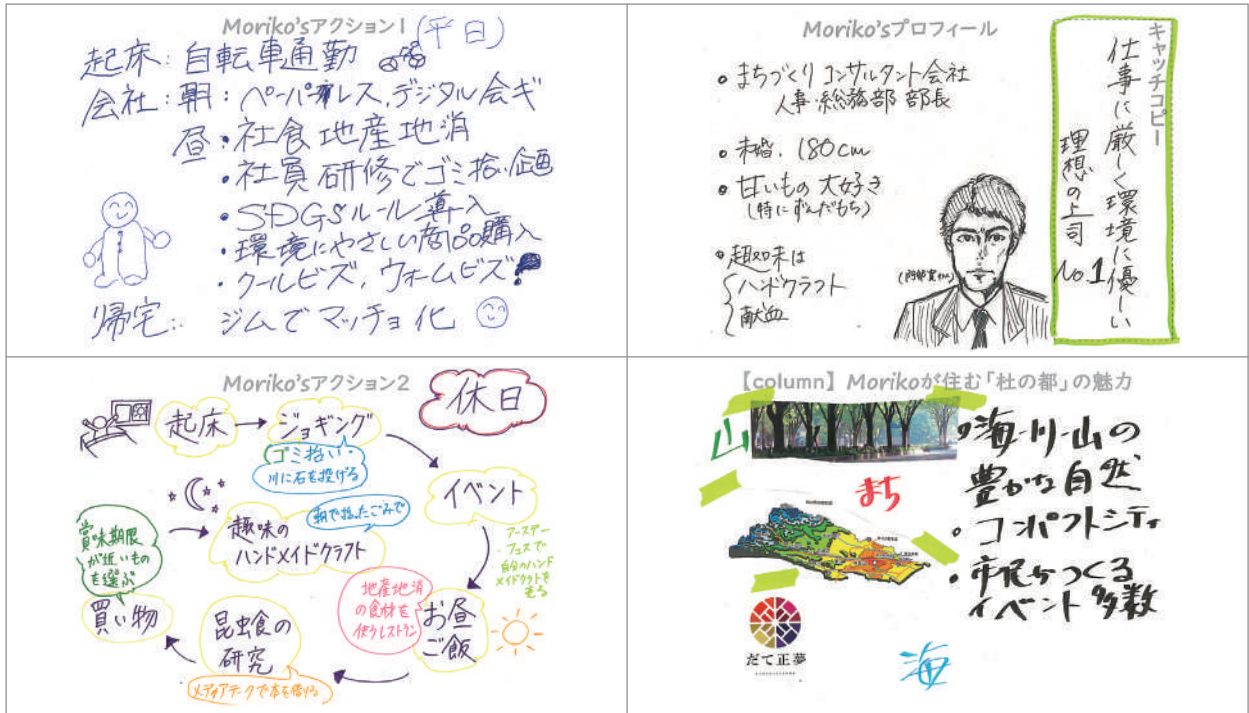 Moriko'sアクション1
(平日)
起床：自転車通勤
会社：朝：ペーパーレス，デジタル会ギ
昼・社食地産地消
・社員研修でゴミ拾い企画
・SDGSルール導入
・環境にやさしい商品購入
・クールビズ，ウォームビズ
帰宅：ジムでマッチョ化
Moriko'sプロフィール
・まちづくりコンサルタント会社
人事・総務部 部長
・未婚．180cm
・甘いもの大好き
(特にずんだもち)
・趣味は
ハンドクラフト
献血
キャッチコピー
仕事に厳しく環境に優しい
理想の上司 No.1
Moriko'sアクション2
休日
起床
ジョギング
ゴミ拾い・
川に石を投げる
イベント
アースデー
フェスで
自分のハンド
メイドクラフトを
お昼
ご飯
地産地消
の食材を
使うレストラン
昆虫食の
研究
メディアテークで本を借りる
買い物
賞味期限
が近いもの
を選ぶ
趣味の
ハンドメイドクラフト
朝で拾ったごみで
【column】Morikoが住む「杜の都」の魅力
山
まち
海
・海-川-山の
豊かな自然
・コンパクトシティ
・市民がつくる
イベント多数
だて正夢